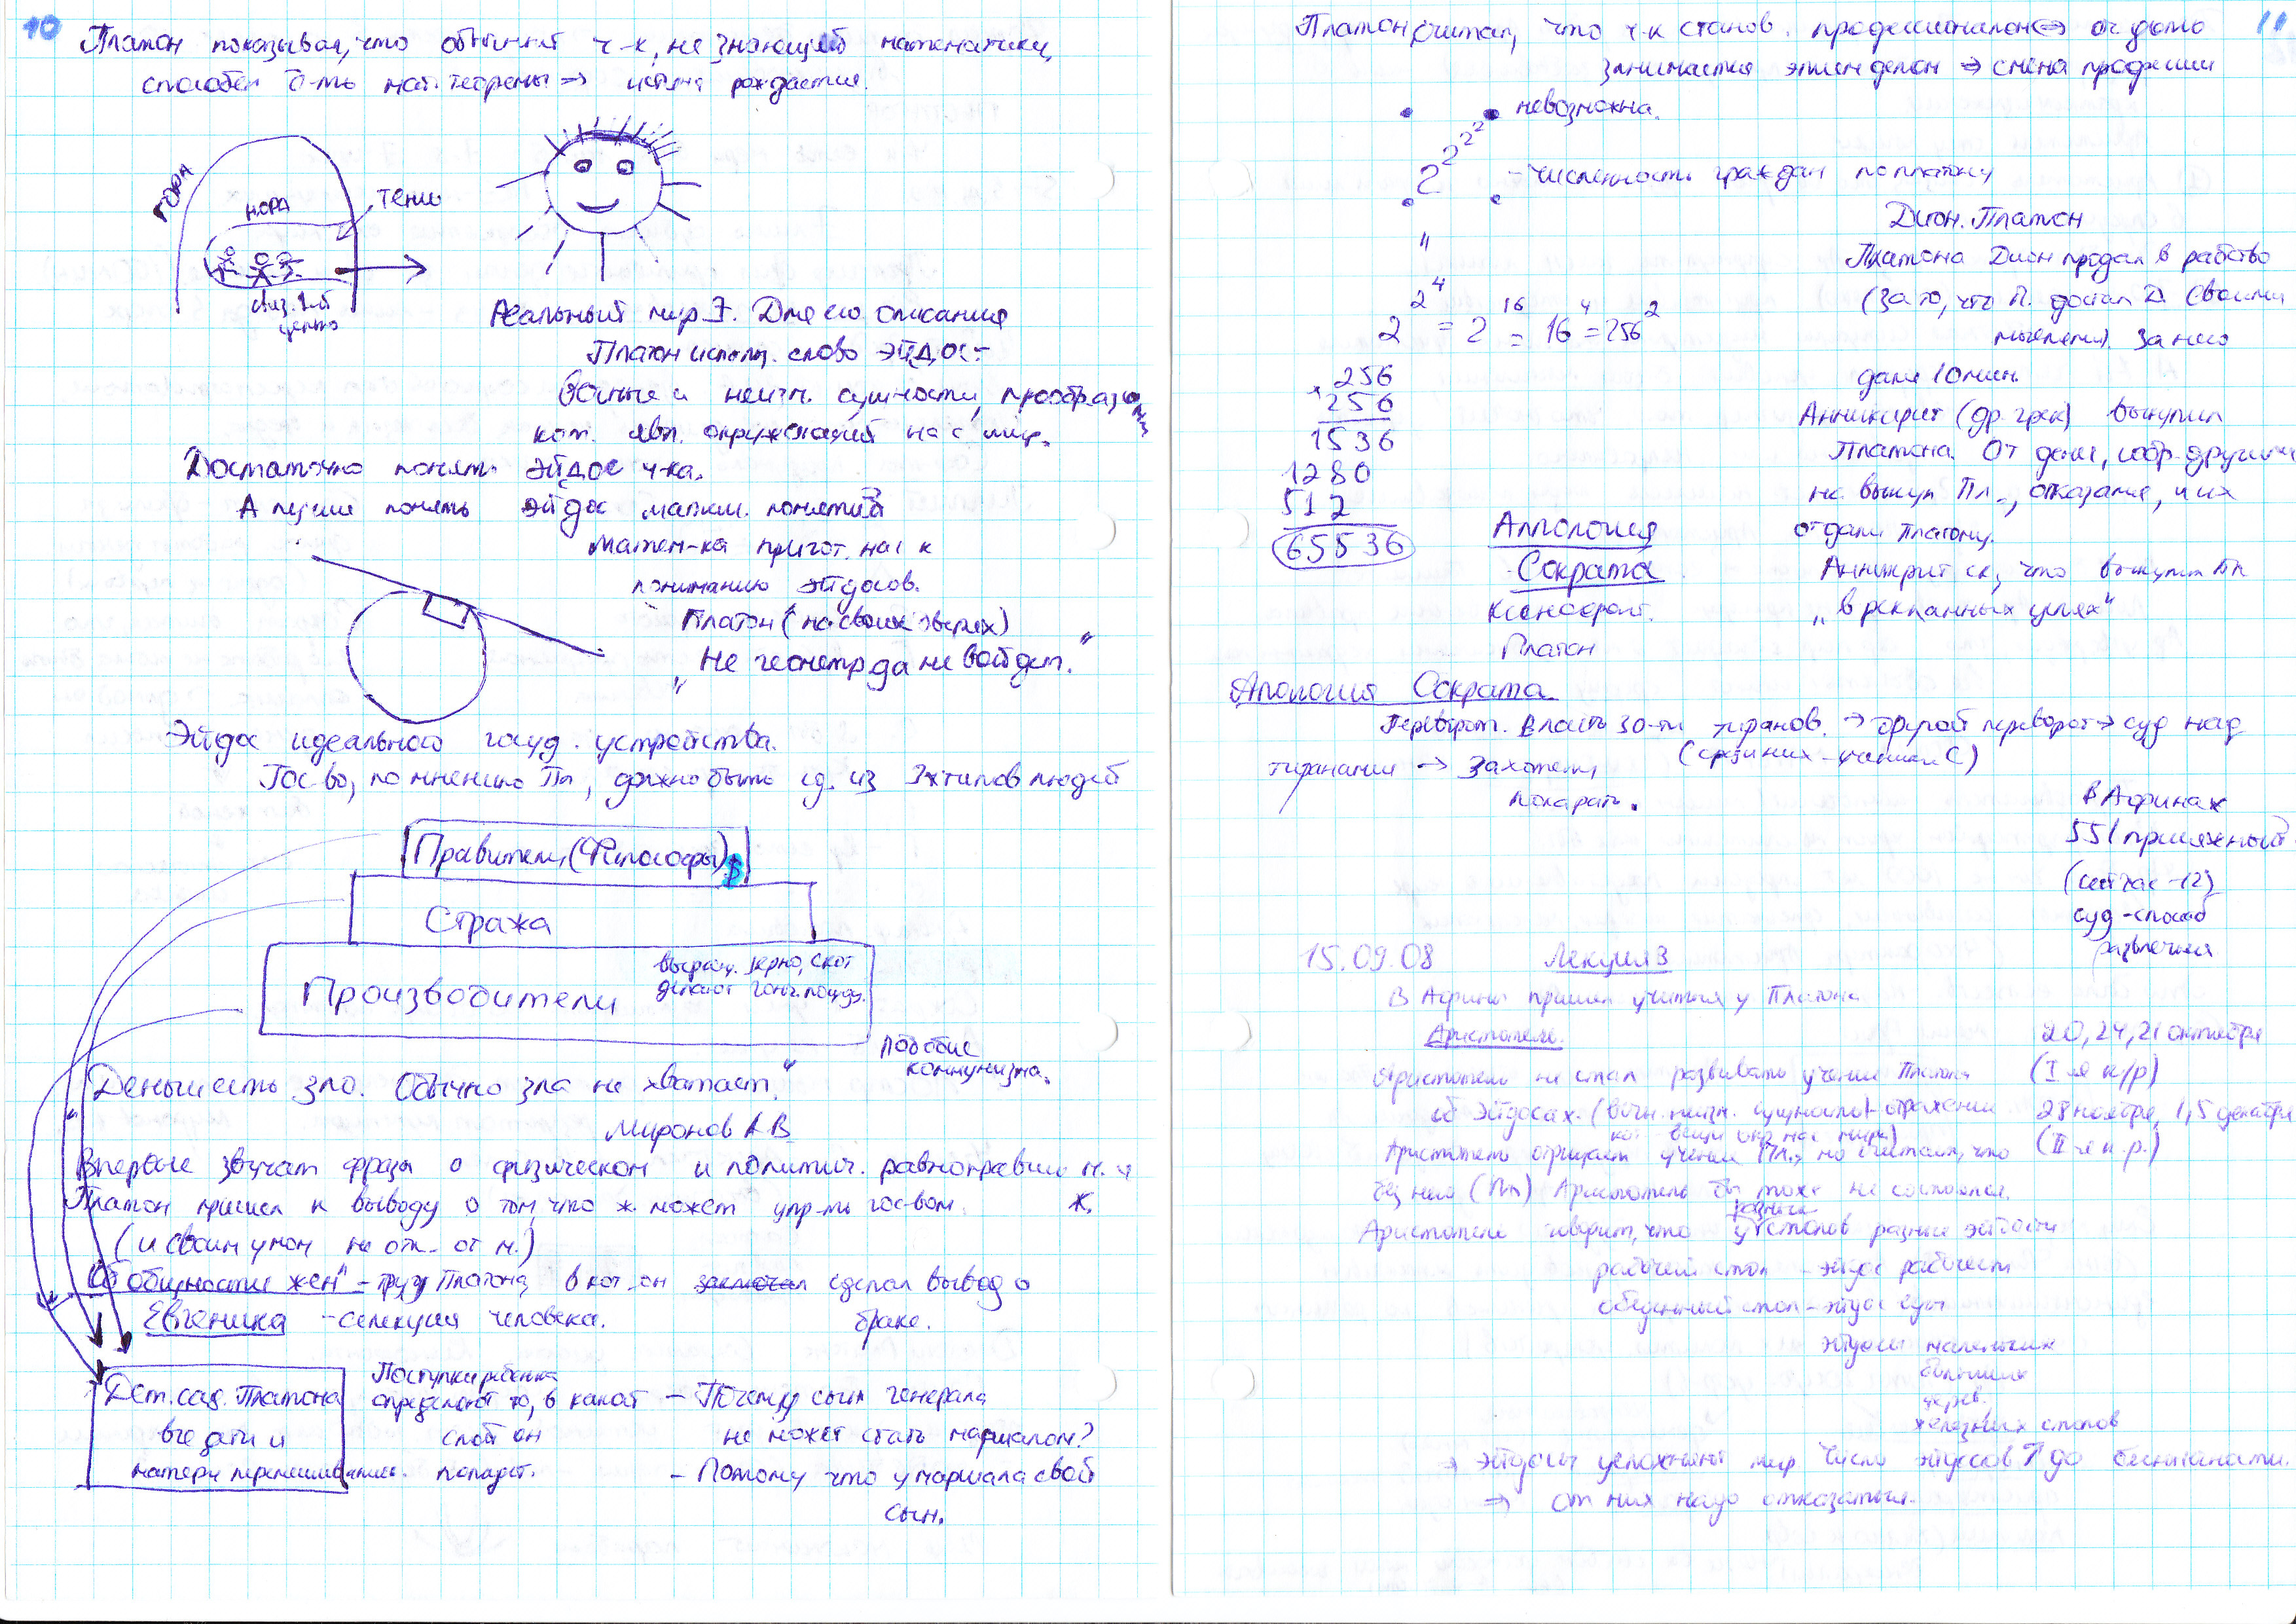 10
Платон показывал, что обычный ч-к, не знающий математики,
способен д-ть мат. теоремы => истина рождается.
ГОРА
НОРА
тени
физ. 1-й
Реальный мир Ǝ. Для его описания
Платон использ. слово эйдос -
вечные и неизм. сущности, прообразом
кот. явл. окружающий нас мир.
Достаточно понять эйдос ч-ка.
А лучше понять эйдос матем. понятий
Матем-ка пригот. нас к
пониманию эйдосов.
Платон (на своих дверях)
„Не геометр да не войдет.“
Эйдос идеального госуд. устройства.
Гос-во, по мнению Пл, должно быть сд. из 3х типов людей
Правители (Философы)
Стража
Производители
выращ. зерно, скот
делают гонч. посуду.
подобие
коммунизма.
„Деньги есть зло. Обычно зла не хватает.“
Миронов А В
Впервые звучат фразы о физическом и политич. равноправии м. и
ж.
Платон пришел к выводу о том, что ж. может упр-ть гос-вом.
(и своим умом не отл. от м.)
"Об общности жен" - труд Платона, в кот. он заключал сделал вывод о
браке.
Евгеника - селекция человека.
Дет. сад. Платона
все дети и
матери перемешивались.
Поступки ребенка
определяют то, в какой
слой он
попадет.
- Почему сын генерала
не может стать маршалом?
- Потому что у маршала свой
сын.
11
Платон считал, что ч-к станов. профессионалом <=> он долго
занимается этим делом => смена профессии
невозможна.
2^2^2^2 - численность граждан по платону
"
2^2^4 = 2^16 = 16^4 = 256^2
256
× 256
1536
1280
512
65536
Дион. Платон
Платона Дион продал в рабство
(за то, что П. достал Д. своими
За него
дали 10 мин.
Анникирит (др. грек) выкупил
Платона. От денег, собр. другими
на выкуп Пл-, отказался, и их
отдали Платону.
Анникрит ск, что выкупил Пл
„в рекламных целях“
Апология
Сократа
Ксенофонт.
Платон
Апология Сократа
Переворот. Власть 30-ти тиранов. -> другой переворот -> суд над
(среди них - ученики С)
тиранами -> Захотели
покарать.
В Афинах
551 присяжный
(сейчас - 12)
суд - способ
развлечения
15.09.08 Лекция 3
В Афины пришел учиться у Платона
Аристотель.
20, 24, 21 октября
(I-я к/р)
28 ноября, 1, 5 декабря
(II-я к.р.)
Аристотель не стал развивать учение Платона
об эйдосах. (вечн. неизм. сущности - отражение
кот. вещи окр. нас мира)
Аристотель отрицает учение Пл., но считал, что
без него (Пл) Аристотель бы тоже не состоялся.
Аристотель говорит, что у разных столов разные эйдосы
рабочий стол - эйдос рабочести
обеденный стол - эйдос еды
эйдосы маленьких
больших
дерев.
железных столов
=> эйдосы усложняют мир число эйдосов ↑ до бесконечности.
=> от них надо отказаться.